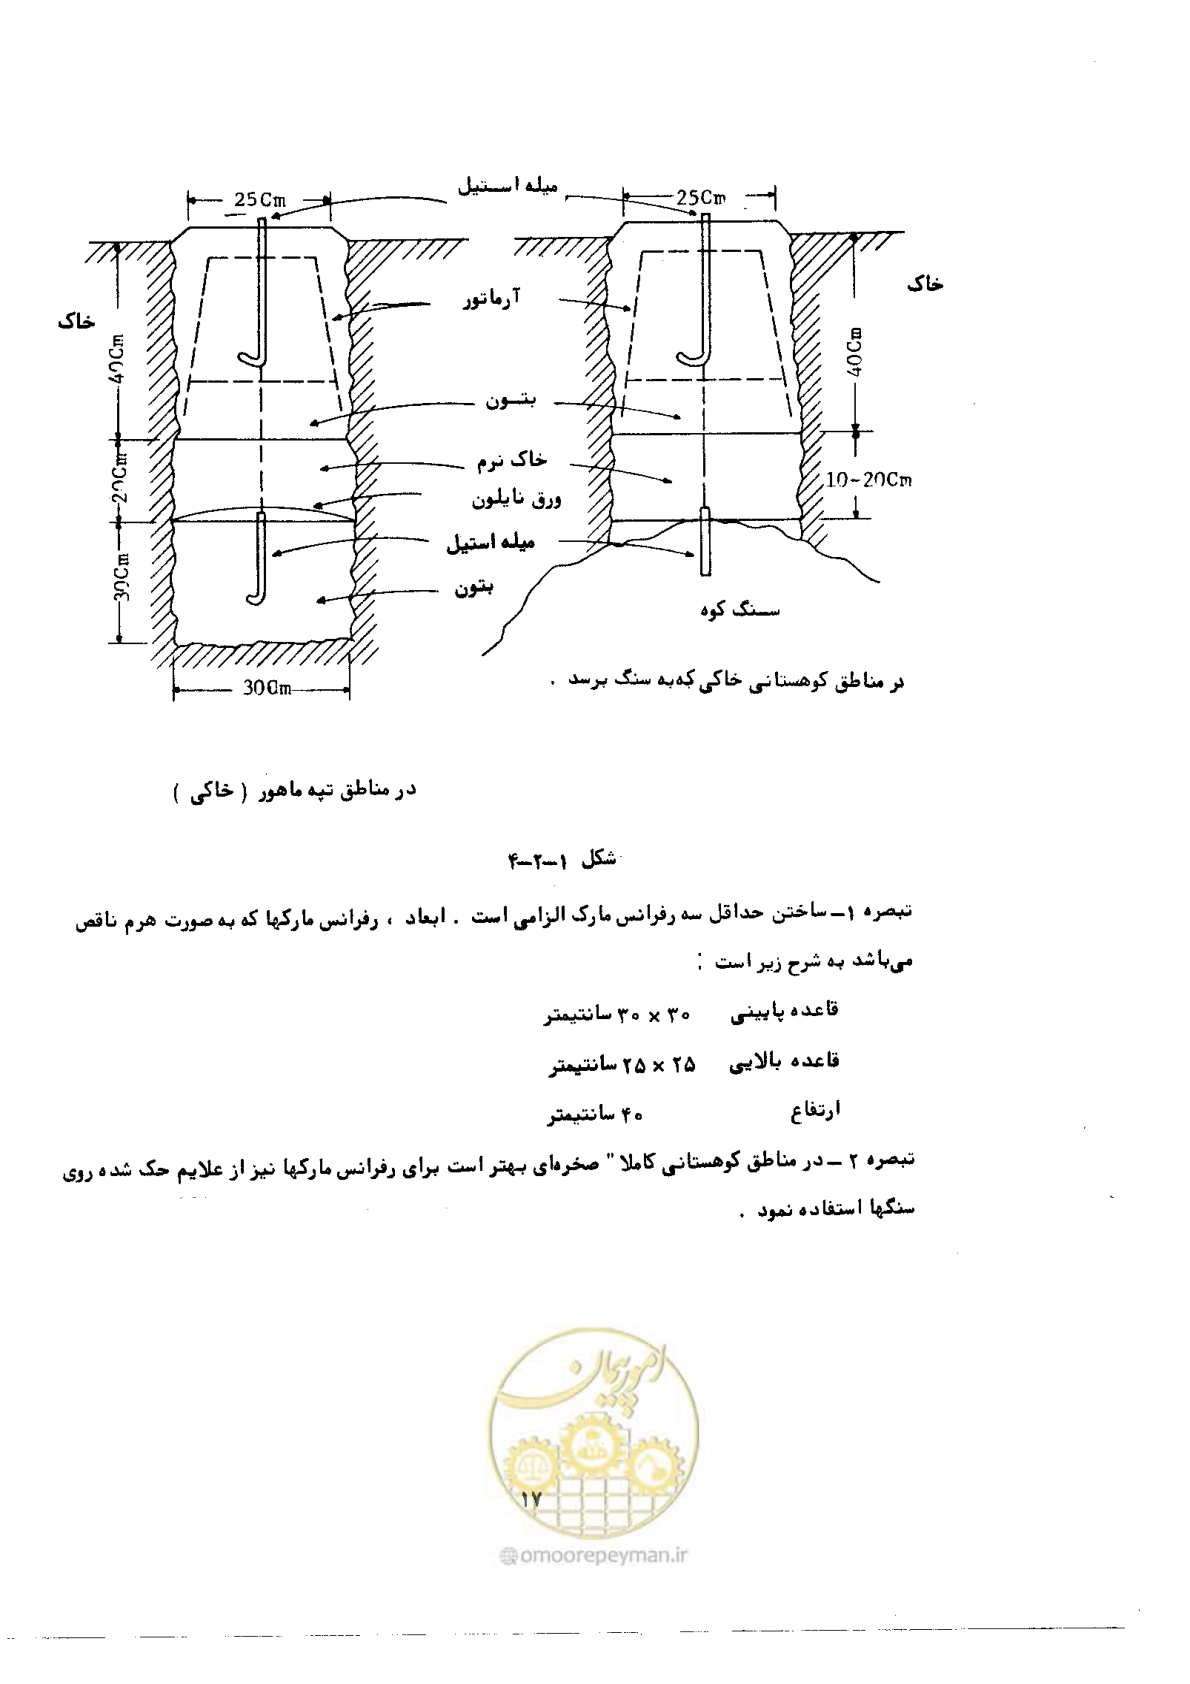 میله استیل
25Cm
25Cm
خاک
آرماتور
خاک
40Cm
40Cm
بتون
خاک نرم
20Cm
10-20Cm
ورق نایلون
میله استیل
30Cm
بتون
سنگ کوه
30Cm
در مناطق کوهستانی خاکی که‌به سنگ برسد .
در مناطق تپه ماهور ( خاکی )
شکل ۱-۲-۴
تبصره ۱- ساختن حداقل سه رفرانس مارک الزامی است . ابعاد ، رفرانس مارکها که به صورت هرم ناقص
می‌باشد به شرح زیر است :
قاعده پایینی ۳۰ × ۳۰ سانتیمتر
قاعده بالایی ۲۵ × ۲۵ سانتیمتر
ارتفاع ۴۰ سانتیمتر
تبصره ۲ - در مناطق کوهستانی کاملا" صخره‌ای بهتر است برای رفرانس مارکها نیز از علایم حک شده روی
سنگها استفاده نمود .
امور پیمان
۱۷
@omoorepeyman.ir